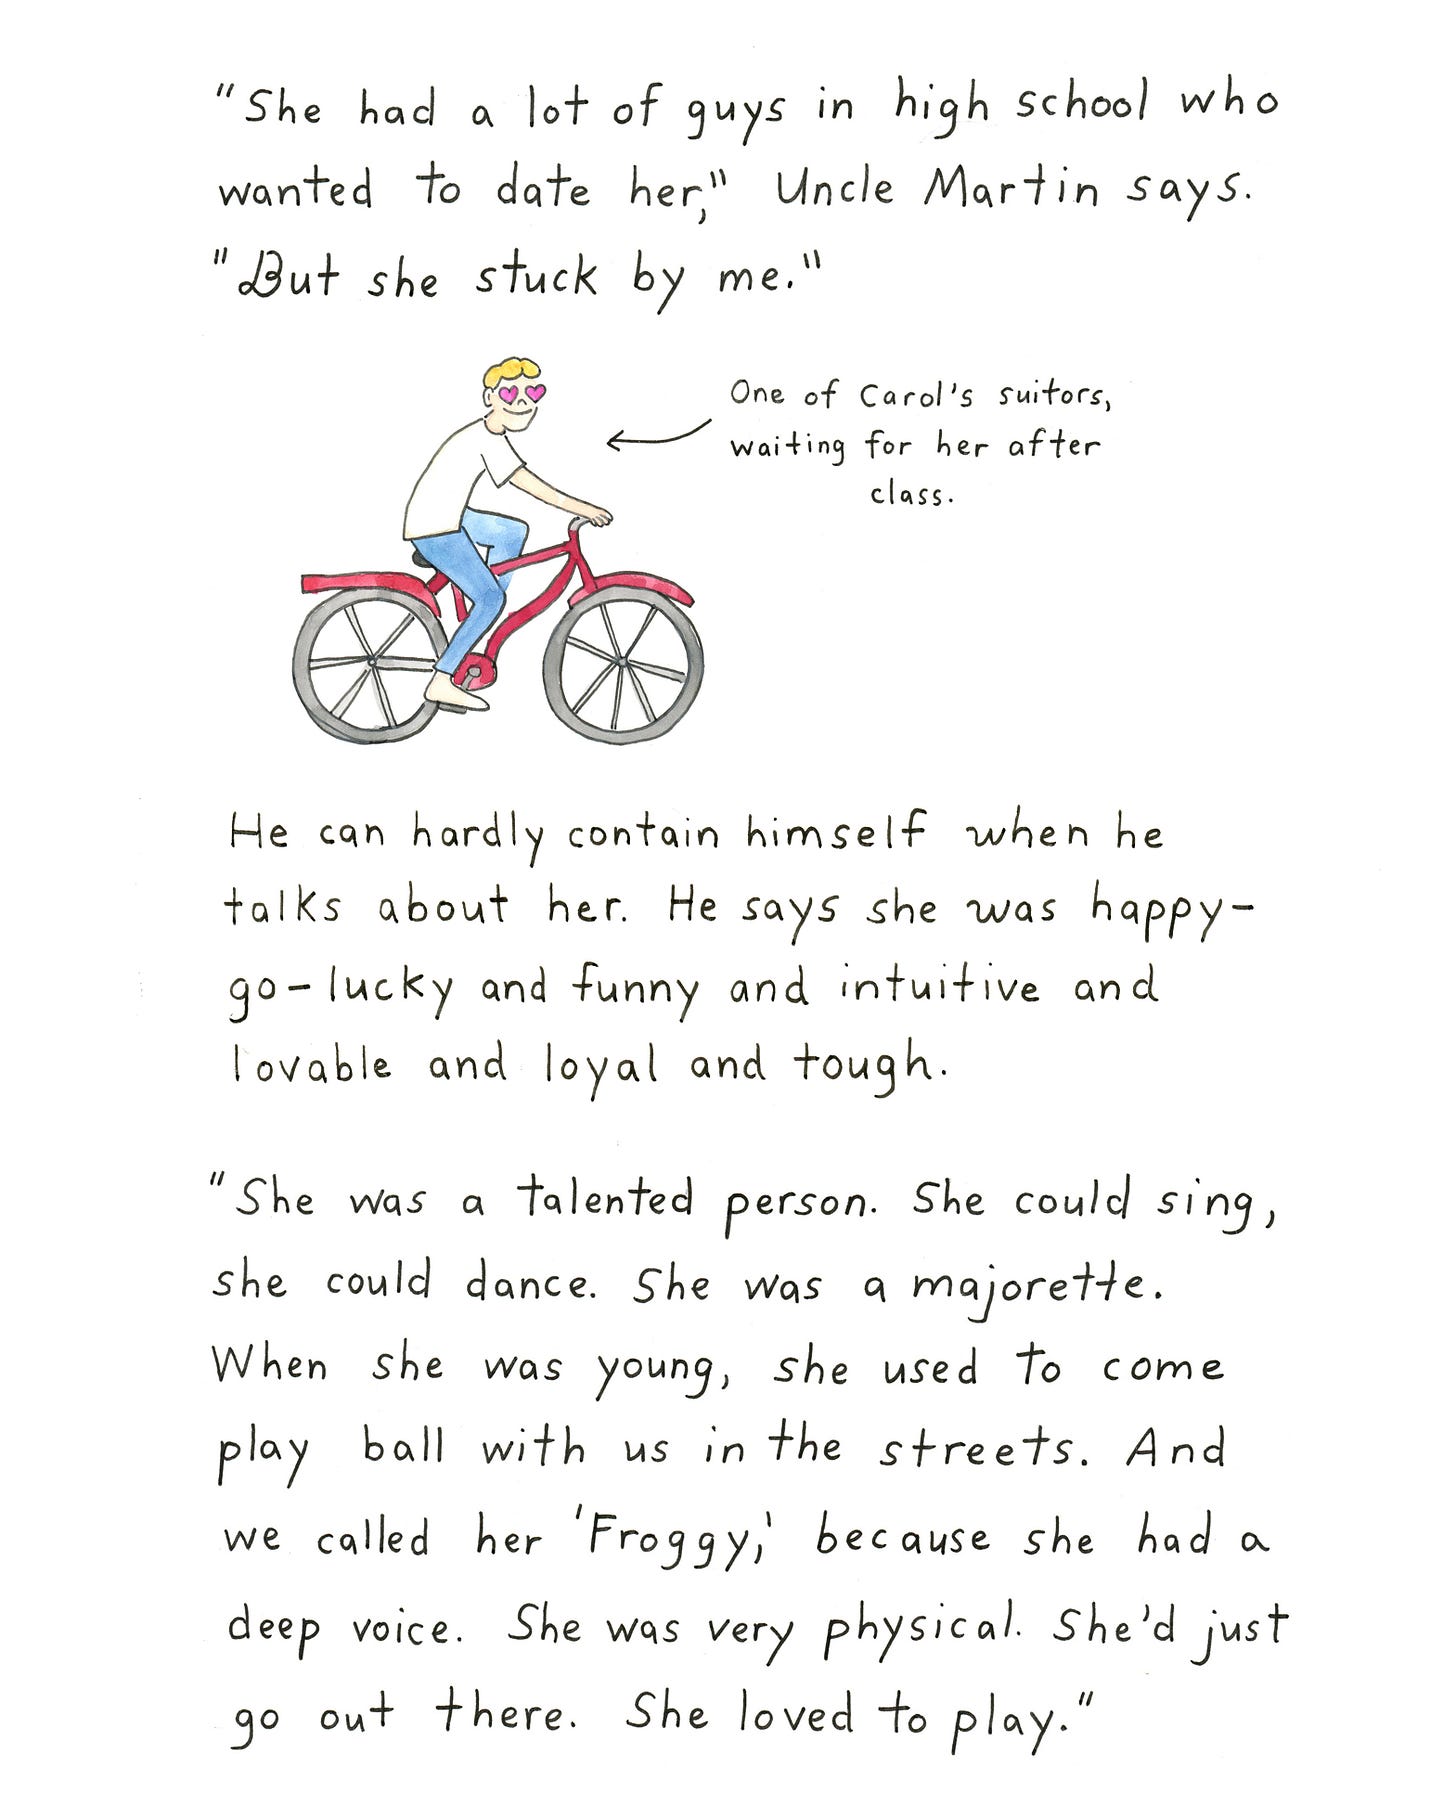 "She had a lot of guys in high school who
wanted to date her," Uncle Martin says.
"But she stuck by me."
One of Carol's suitors,
waiting for her after
class.
He can hardly contain himself when he
talks about her. He says she was happy-
go-lucky and funny and intuitive and
lovable and loyal and tough.
"She was a talented person. She could sing,
she could dance. She was a majorette.
When she was young, she used to come
play ball with us in the streets. And
we called her 'Froggy,' because she had a
deep voice. She was very physical. She'd just
go out there. She loved to play."